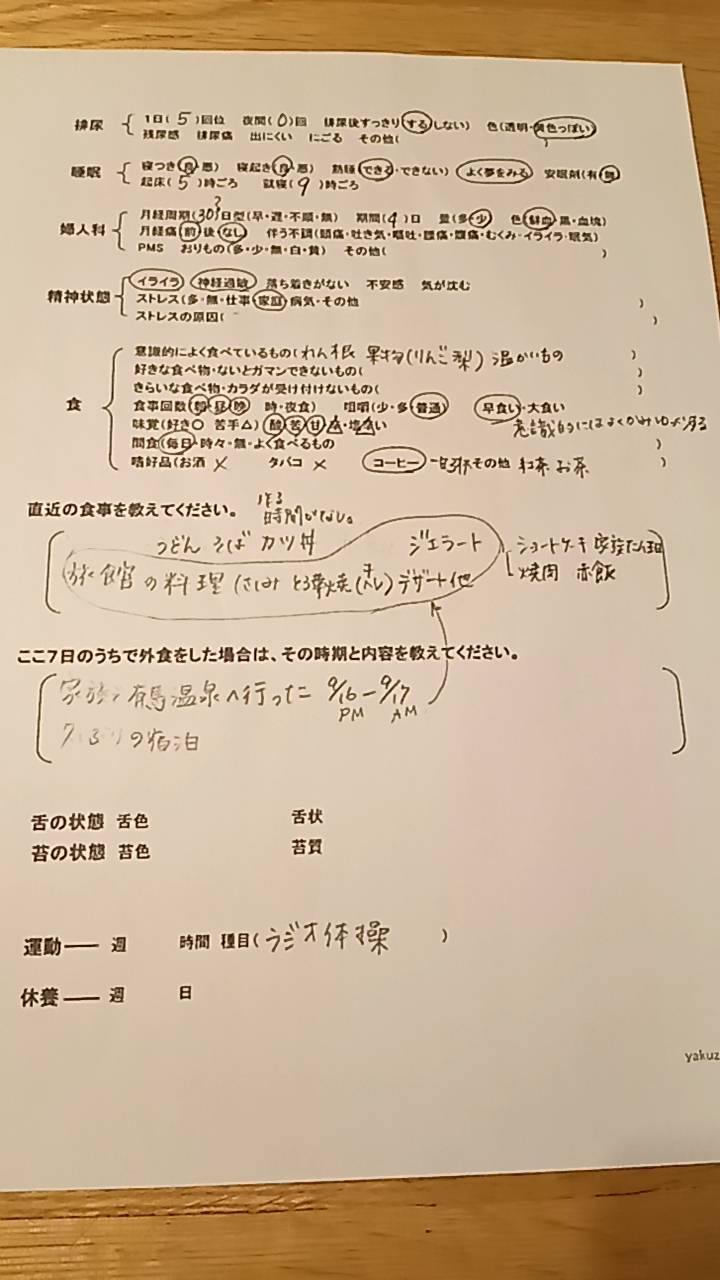 排尿 1日( 5 )回位 夜間( 0 )回 排尿後すっきり(する・しない) 色(透明・黄色っぽい)
残尿感 排尿痛 出にくい にごる その他( )
睡眠 寝つき(良・悪) 寝起き(良・悪) 熟睡(できる・できない) よく夢をみる 安眠剤(有・無)
起床( 5 )時ごろ 就寝( 9 )時ごろ
婦人科 月経周期( 30? )日型(早・遅・不順・無) 期間( 4 )日 量(多・少) 色(鮮血・黒・血塊)
月経痛(前・後・なし) 伴う不調(頭痛・吐き気・嘔吐・腰痛・腹痛・むくみ・イライラ・眠気)
PMS おりもの(多・少・無・白・黄) その他( )
精神状態 イライラ 神経過敏 落ち着きがない 不安感 気が沈む
ストレス(多・無・仕事・家庭・病気・その他 )
ストレスの原因( )
食 意識的によく食べているもの( れん根 果物(りんご 梨) 温かいもの )
好きな食べ物・ないとガマンできないもの( )
きらいな食べ物・カラダが受け付けないもの( )
食事回数(朝・昼・晩 時・夜食) 咀嚼(少・多・普通) 早食い・大食い
味覚(好き○ 苦手△)(酸・苦・甘・辛・塩からい 意識的にはよくかみ
間食(毎日・時々・無・よく食べるもの )
嗜好品(お酒 × タバコ × コーヒー その他 紅茶 お茶 )
直近の食事を教えてください。 作る
時間がない。
うどん そば カツ丼 ジェラート ショートケーキ 家族
旅館の料理(さしみ デザート他 焼肉 赤飯
ここ7日のうちで外食をした場合は、その時期と内容を教えてください。
家族で有馬温泉へ行った 9/16 PM – 9/17 AM
の宿泊
舌の状態 舌色 舌状
苔の状態 苔色 苔質
運動―― 週 時間 種目( ラジオ体操 )
休養―― 週 日
yakuz